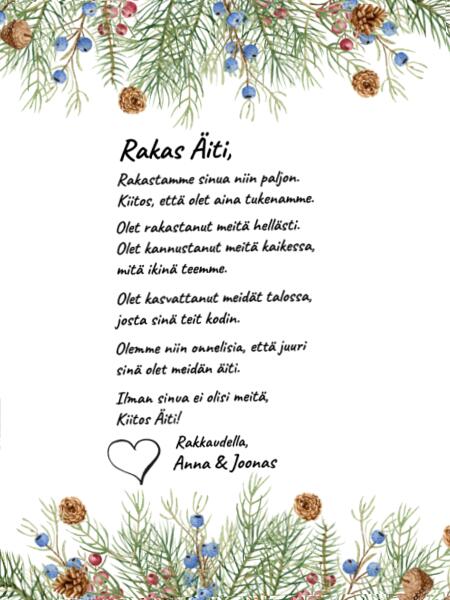 Rakas Äiti,
Rakastamme sinua niin paljon.
Kiitos, että olet aina tukenamme.
Olet rakastanut meitä hellästi.
Olet kannustanut meitä kaikessa,
mitä ikinä teemme.
Olet kasvattanut meidät talossa,
josta sinä teit kodin.
Olemme niin onnelisia, että juuri
sinä olet meidän äiti.
Ilman sinua ei olisi meitä,
Kiitos Äiti!
Rakkaudella,
Anna & Joonas